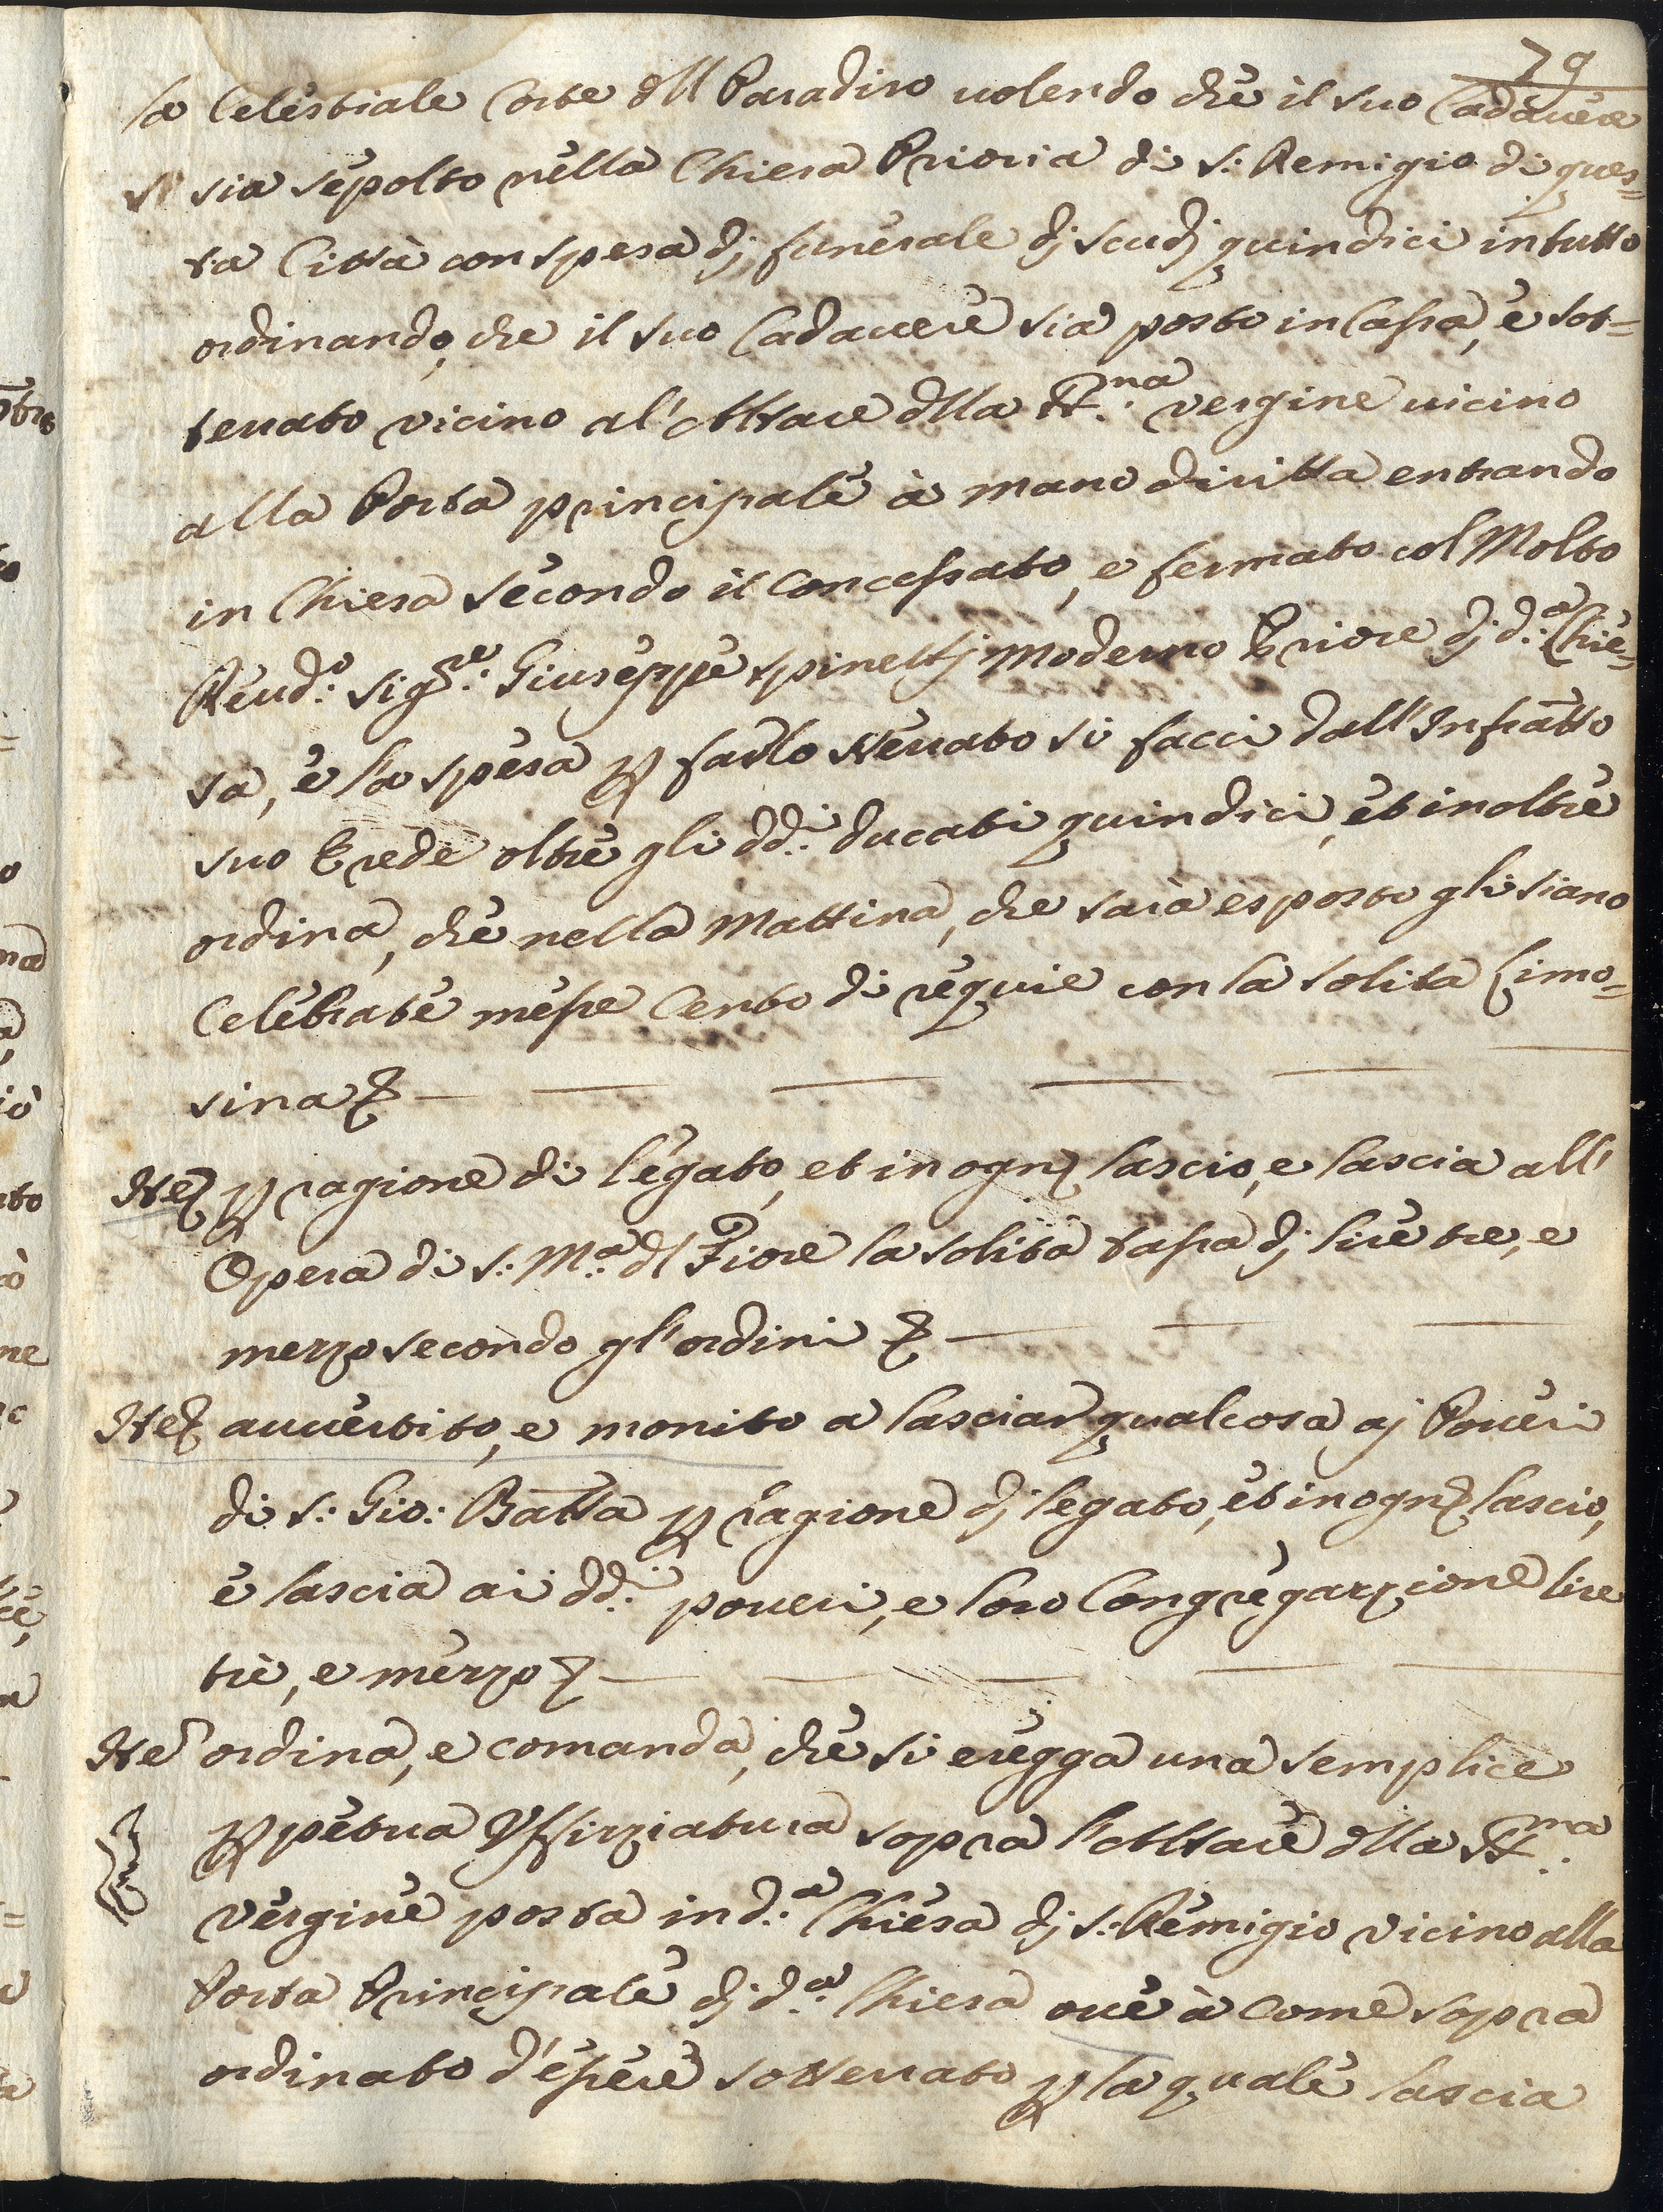 79
la Celestiale Corte dll Paradiso uolendo che il suo Cadauere
si sia sepolto nella Chiesa Prioria di S: Remigio di ques=
ta Città con spesa dj funerale dj scudj quindici in tutto
ordinando, che il suo Cadauere sia posto in Cassa, e sot=
terrato vicino al'Altare dlla SS:ma vergine uicino
alla Porta principale à mano diritta entrando
in Chiesa secondo il Concessato, e fermato col Molto
Reud:o Sig:re Giuseppe Spinellj Moderno Priore dj d:a Chie=
sa, e la spesa p farlo sterrato si facci dall'Infratto
suo Erede oltre gli dd:i ducati quindici, et inoltre
ordina, che nella Mattina, che sarà esposto gli siano
Celebrate messe Cento di requie con la solita Limo=
sina
Ite p ragione di legato, et in ogn lascio, e lascia all'
Opera di S: M:a dl Fiore la solita tassa dj lire tre, e
mezzo secondo gl'ordini
Ite auuertito, e monito a lasciar qualcosa aj Poueri
di S: Gio: Batta p ragione dj legato, et in ogn lascio,
e lascia ai dd:i poueri, e loro Congregazzione lire
tre, e mezzo
Ite ordina, e comanda, che si eregga una semplice
ppetua Vffizziatura sopra l'Altare dlla SS:ma
vergine posta in d:a Chiesa dj S: Remigio vicino alla
Porta Principale dj d:a Chiesa oue à come sopra
ordinato d'essere sotterrato p la quale lascia